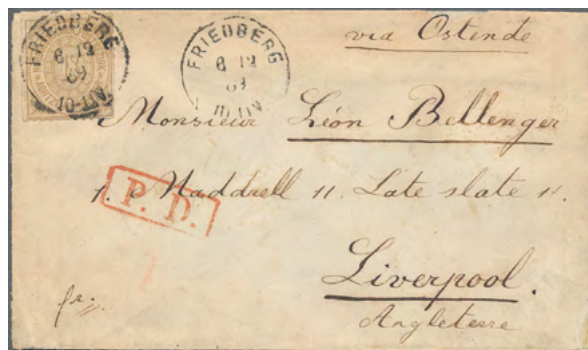 FRIEDBERG
6 12
69
10-11 V.
FRIEDBERG
6 12
via Ostende
Monsieur Léon Bellenger
1. Maddrell 11. Late slate 11.
P. D.
Liverpool.
fr.
Angleterre